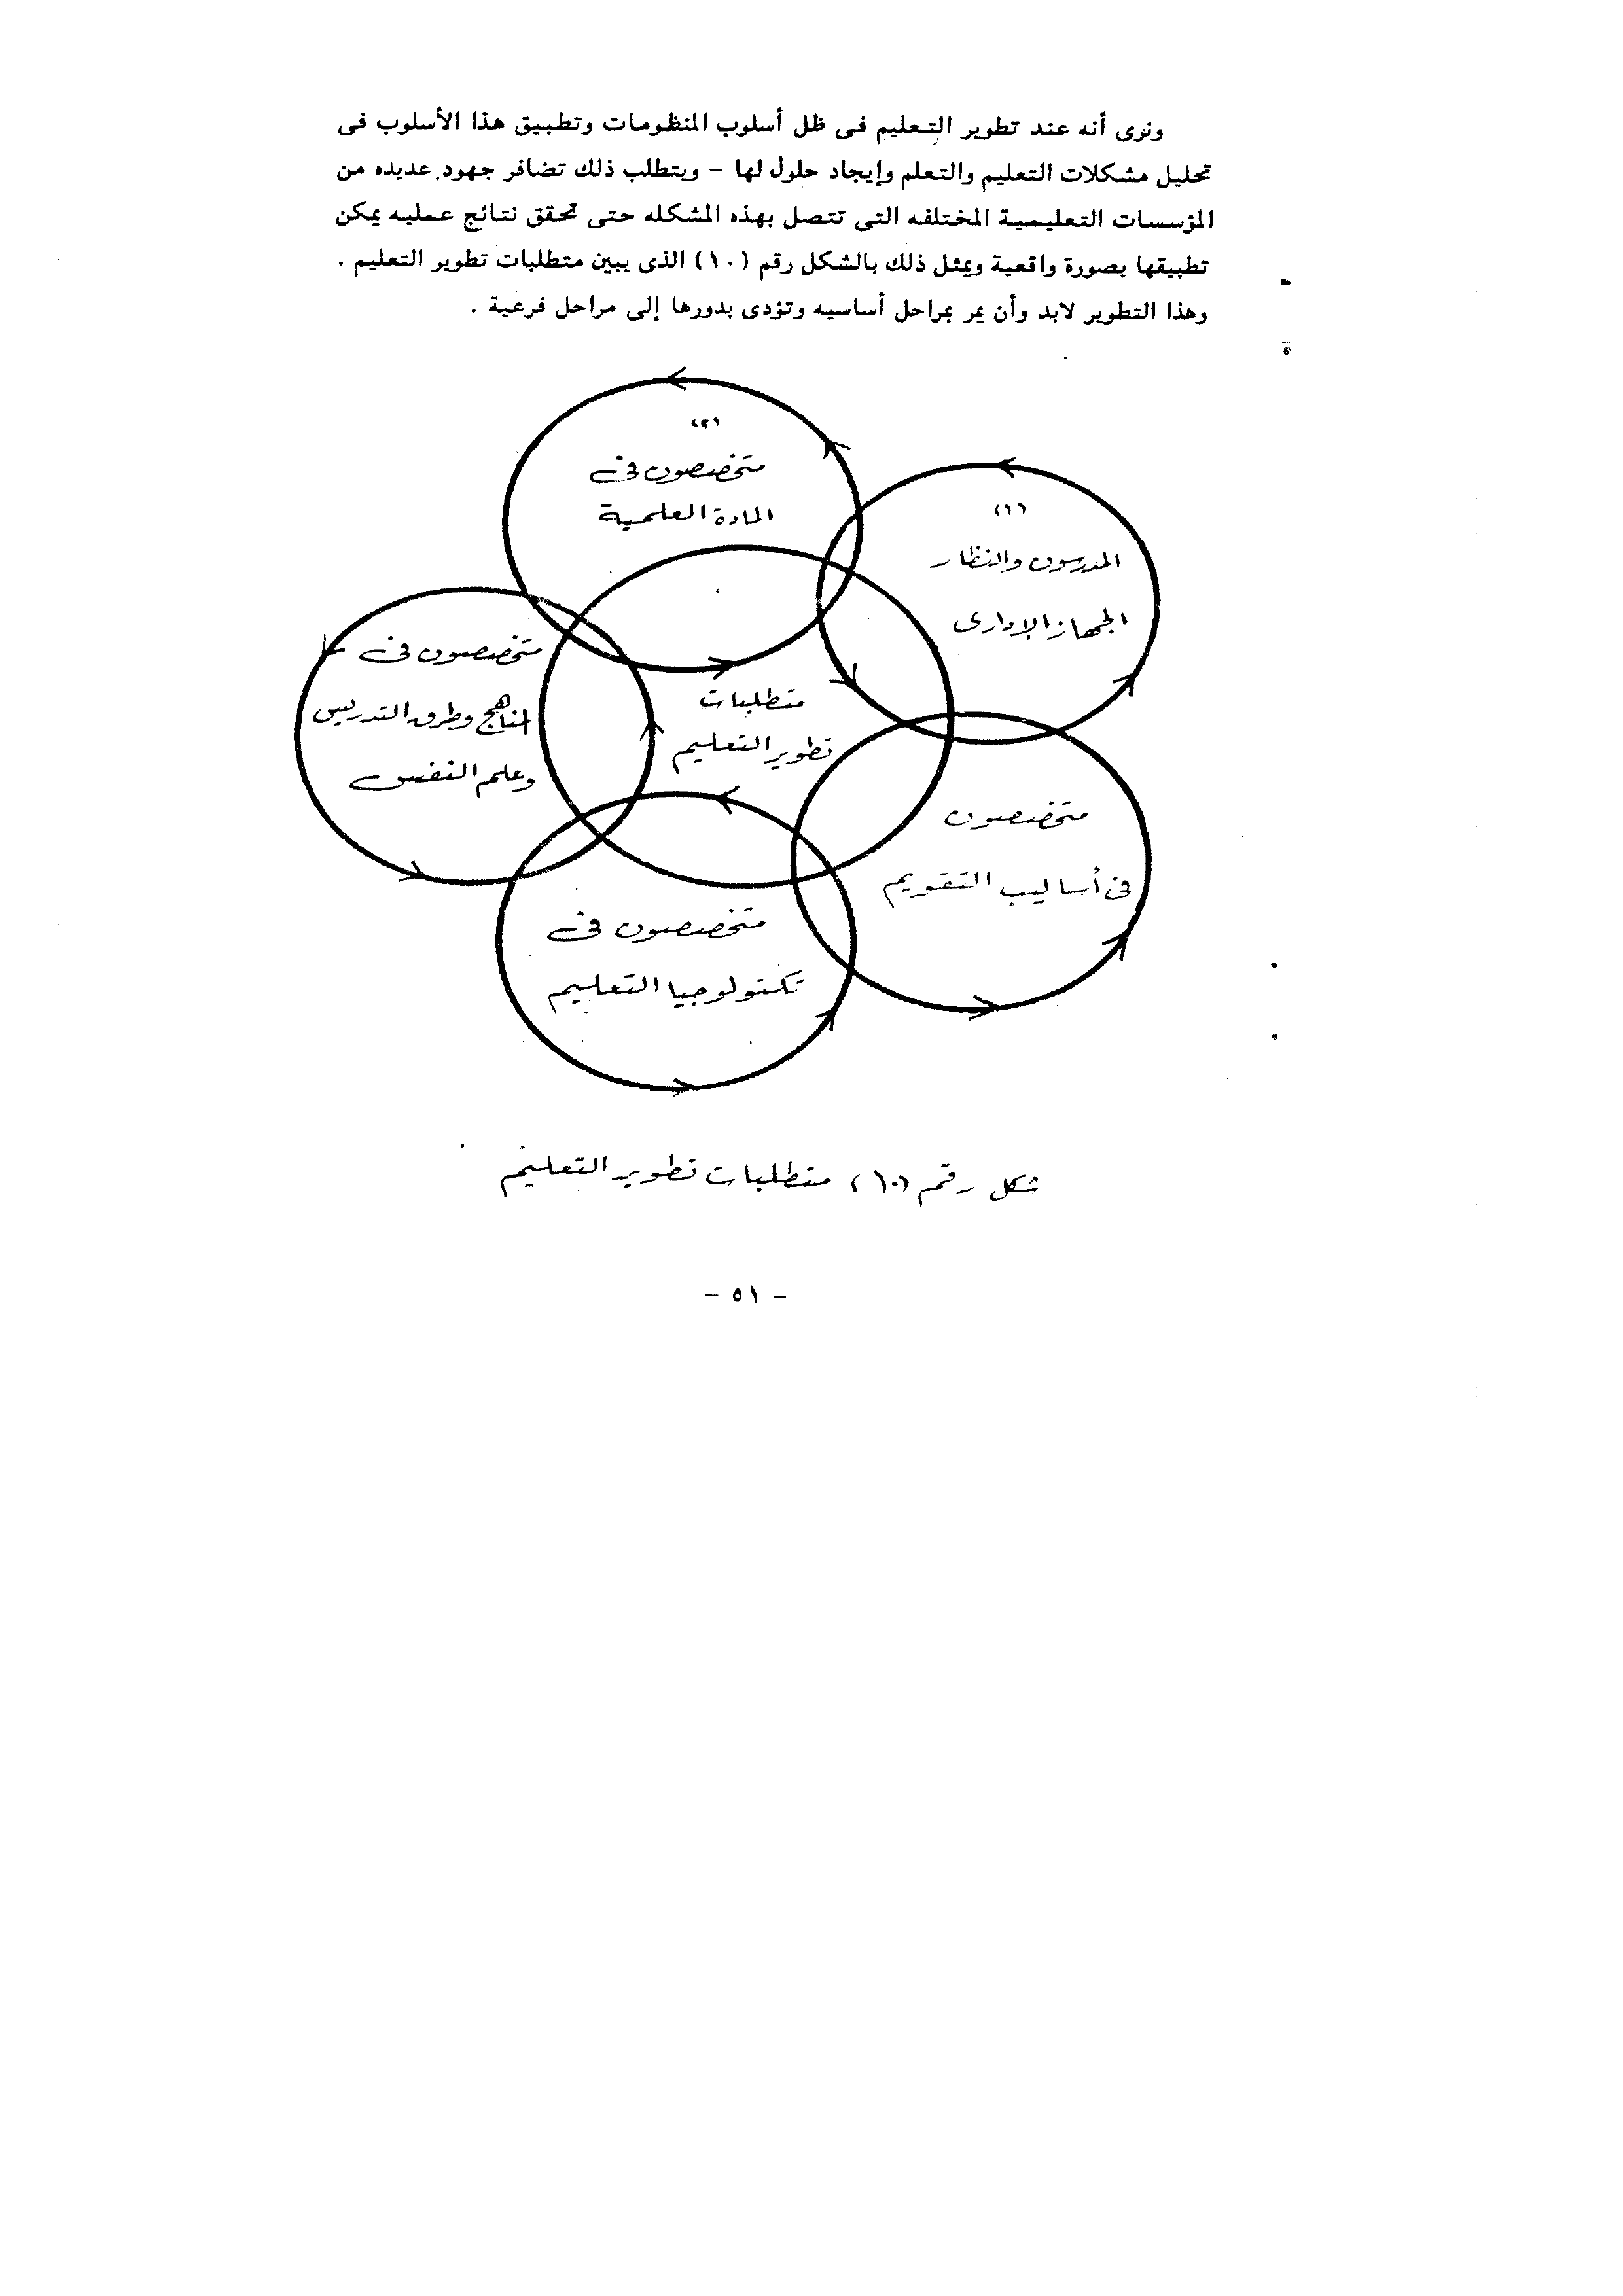 ونرى أنه عند تطوير التعليم فى ظل أسلوب المنظومات وتطبيق هذا الأسلوب فى
تحليل مشكلات التعليم والتعلم وإيجاد حلول لها - ويتطلب ذلك تضافر جهود عديده من
المؤسسات التعليمية المختلفه التى تتصل بهذه المشكله حتى تحقق نتائج عمليه يمكن
تطبيقها بصورة واقعية ويمثل ذلك بالشكل رقم (١٠) الذى يبين متطلبات تطوير التعليم .
وهذا التطوير لابد وأن يمر بمراحل أساسيه وتؤدى بدورها إلى مراحل فرعية .
(١)
المدرسون والنظار
الجهاز الإدارى
(٢)
متخصصون فى
المادة العلمية
متخصصون فى
المناهج وطرق التدريس
وعلم النفس
متطلبات
تطوير التعليم
متخصصون
فى أساليب التقويم
متخصصون فى
تكنولوجيا التعليم
شكل رقم (١٠) متطلبات تطوير التعليم
- ٥١ -